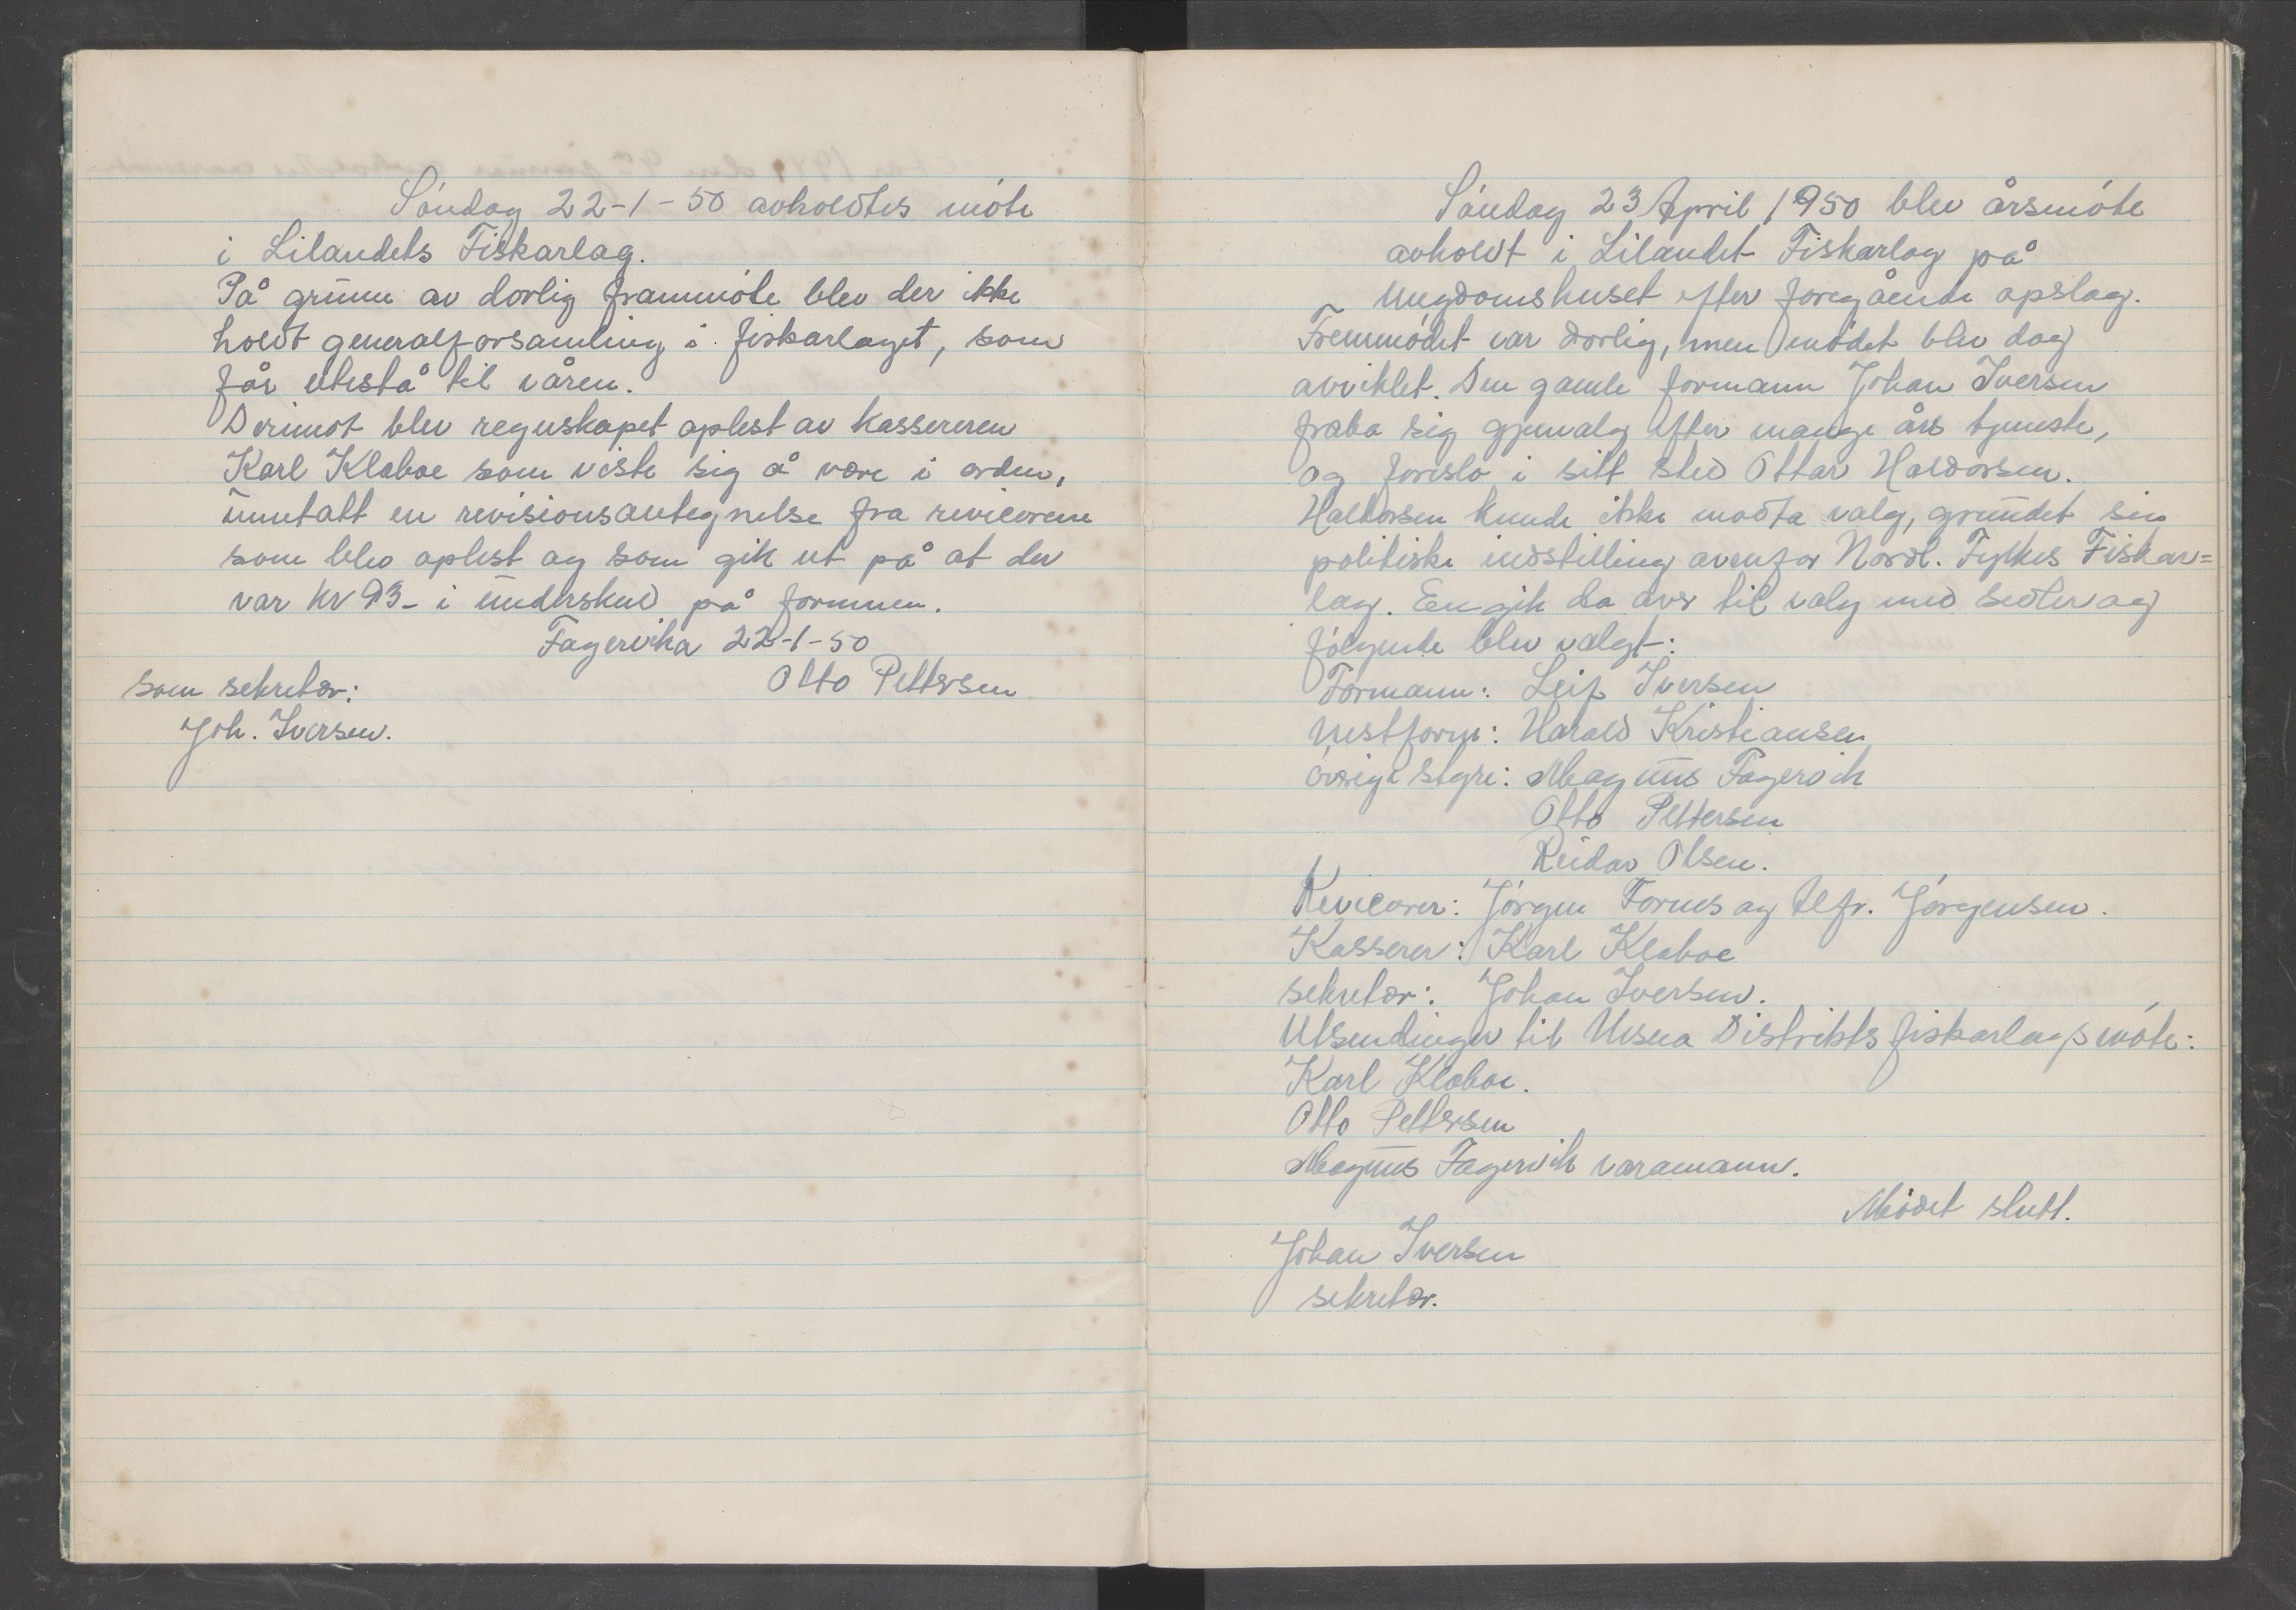 Søndag 22-1-50 avholdtes møte
i Lilandets Fiskarlag.
På grunn av dorlig frammøte blev der ikke
holdt generalforsamling i fiskarlaget, som
får utestå til våren.
Derimot blev regnskapet oplest av kassereren
Karl Klaboe som viste sig å være i orden,
unntatt en revisionsantegnelse fra revisorene
som blev oplest og som gik ut på at der
var kr 93- i underskud på formuen.
Fagervika 22-1-50
Otto Pettersen
som sekretær:
Joh. Iversen.
Søndag 23 April 1950 blev årsmøte
avholdt i Lilandet Fiskarlag på
Ungdomshuset efter foregående opslag.
Fremmødet var dorlig, men mødet blev dog
avviklet. Den gamle formann Johan Iversen
fraba sig gjenvalg efter mange års tjeneste,
og foreslo i sitt sted Ottar Haldorsen.
Haldorsen kunde ikke modta valg, grundet sin
politiske indstilling ovenfor Nordl. Fylkes Fiskar=
lag. En gik da over til valg med sedler og
følgende blev valgt:
Formann: Leif Iversen
Nestform: Harald Kristiansen
øvrige styre: Magnus Fagervik
Otto Pettersen
Reidar Olsen.
Revisorer: Jørgen Fornes og Alfr. Jørgensen.
Kasserer: Karl Klaboe
sekretær: Johan Iversen.
Utsendinger til Nesna Distrikts fiskarlagsmøte:
Karl Klaboe.
Otto Pettersen
Magnus Fagervik varamann.
Mødet slutt.
Johan Iversen
sekretær.